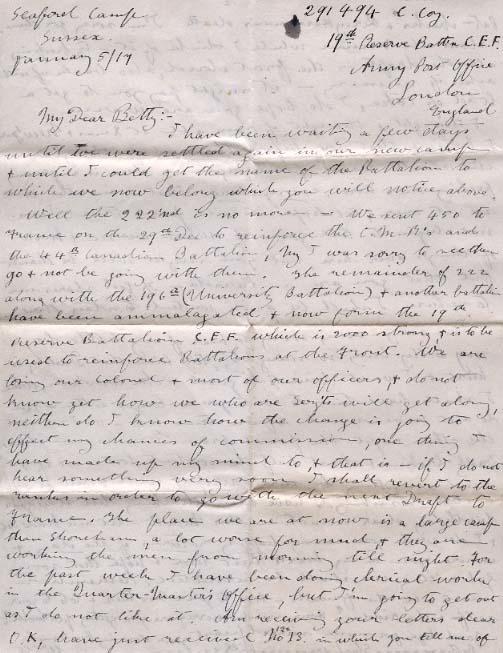 Seaford Camp
Sussex.
January 5/17
291494 C. Coy.
19th Reserve Battn C.E.F.
Army Post Office
London
England
My Dear Betty:-
I have been waiting a few days
until we were settled again in our new camp
& until I could get the name of the Battalion to
which we now belong which you will notice above.
Well the 222nd is no more — We sent 450 to
France on the 29th Dec to reinforce the C.M.R's and
the 44th Canadian Battalion, My I was sorry to see them
go & not be going with them. The remainder of 222
along with the 196th (University Battalion) & another battalion
have been ammalagated & now form the 19th
Reserve Battalion C.E.F. which is 2000 strong & is to be
used to reinforce Battalions at the Front. We are
losing our Colonel & most of our officers, & do not
know yet how we who are Sergts will get along,
neither do I know how the change is going to
effect my chances of commission, one thing I
have made up my mind to & that is — if I do not
hear something very soon I shall revert to the
ranks in order to go with the next Draft to
France. The place we are at now is a large camp
than Shoreham, a lot worse for mud & they are
working the men from morning till night. For
the past week I have been doing clerical work
in the Quarter-Master's Office, but I'm going to get out
as I do not like it. Am receiving your letters dear
O.K, have just received No 13. in which you tell me of